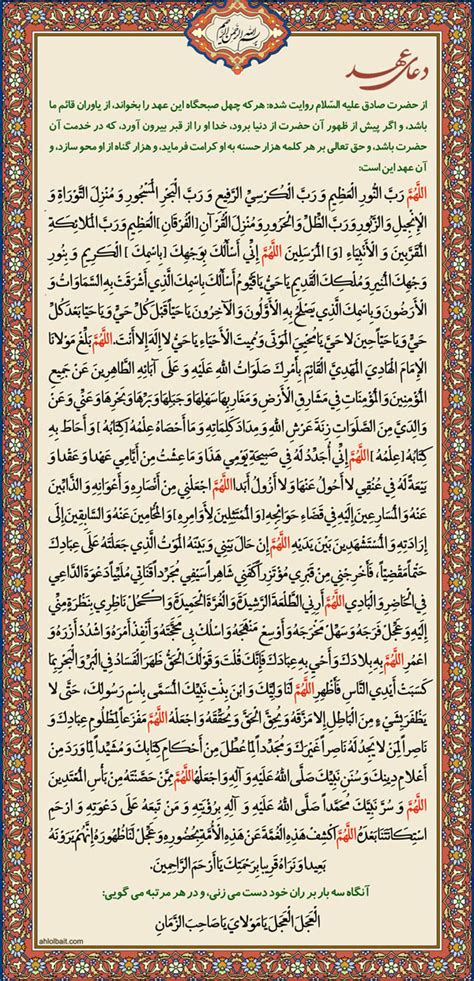 بسم الله الرحمن الرحیم
دعای عهد
از حضرت صادق علیه السّلام روایت شده: هر که چهل صبحگاه این عهد را بخواند، از یاوران قائم ما
باشد، و اگر پیش از ظهور آن حضرت از دنیا برود، خدا او را از قبر بیرون آورد، که در خدمت آن
حضرت باشد، و حق تعالی بر هر کلمه هزار حسنه به او کرامت فرماید، و هزار گناه از او محو سازد، و
آن عهد این است:
اَللّٰهُمَّ رَبَّ النُّورِ الْعَظِيمِ وَ رَبَّ الْكُرْسِيِّ الرَّفِيعِ وَ رَبَّ الْبَحْرِ الْمَسْجُورِ وَ مُنْزِلَ التَّوْرَاةِ وَ
الْإِنْجِيلِ وَ الزَّبُورِ وَ رَبَّ الظِّلِّ وَ الْحَرُورِ وَ مُنْزِلَ الْقُرْآنِ [الْفُرْقَانِ] الْعَظِيمِ وَ رَبَّ الْمَلائِكَةِ
الْمُقَرَّبِينَ وَ الْأَنْبِيَاءِ [وَ] الْمُرْسَلِينَ اَللّٰهُمَّ إِنِّي أَسْأَلُكَ بِوَجْهِكَ [بِاسْمِكَ] الْكَرِيمِ وَ بِنُورِ
وَجْهِكَ الْمُنِيرِ وَ مُلْكِكَ الْقَدِيمِ يَا حَيُّ يَا قَيُّومُ أَسْأَلُكَ بِاسْمِكَ الَّذِي أَشْرَقَتْ بِهِ السَّمَاوَاتُ وَ
الْأَرَضُونَ وَ بِاسْمِكَ الَّذِي يَصْلَحُ بِهِ الْأَوَّلُونَ وَ الْآخِرُونَ يَا حَيّاً قَبْلَ كُلِّ حَيٍّ وَ يَا حَيّاً بَعْدَ كُلِّ
حَيٍّ وَ يَا حَيّاً حِينَ لا حَيَّ يَا مُحْيِيَ الْمَوْتَى وَ مُمِيتَ الْأَحْيَاءِ يَا حَيُّ لا إِلَهَ إِلّا أَنْتَ. اَللّٰهُمَّ بَلِّغْ مَوْلانَا
الْإِمَامَ الْهَادِيَ الْمَهْدِيَّ الْقَائِمَ بِأَمْرِكَ صَلَوَاتُ اللهِ عَلَيْهِ وَ عَلَى آبَائِهِ الطَّاهِرِينَ عَنْ جَمِيعِ
الْمُؤْمِنِينَ وَ الْمُؤْمِنَاتِ فِي مَشَارِقِ الْأَرْضِ وَ مَغَارِبِهَا سَهْلِهَا وَ جَبَلِهَا وَ بَرِّهَا وَ بَحْرِهَا وَ عَنِّي وَ عَنْ
وَالِدَيَّ مِنَ الصَّلَوَاتِ زِنَةَ عَرْشِ اللهِ وَ مِدَادَ كَلِمَاتِهِ وَ مَا أَحْصَاهُ عِلْمُهُ [كِتَابُهُ] وَ أَحَاطَ بِهِ
كِتَابُهُ [عِلْمُهُ] اَللّٰهُمَّ إِنِّي أُجَدِّدُ لَهُ فِي صَبِيحَةِ يَوْمِي هَذَا وَ مَا عِشْتُ مِنْ أَيَّامِي عَهْداً وَ عَقْداً وَ
بَيْعَةً لَهُ فِي عُنُقِي لا أَحُولُ عَنْهَا وَ لا أَزُولُ أَبَداً اَللّٰهُمَّ اجْعَلْنِي مِنْ أَنْصَارِهِ وَ أَعْوَانِهِ وَ الذَّابِّينَ
عَنْهُ وَ الْمُسَارِعِينَ إِلَيْهِ فِي قَضَاءِ حَوَائِجِهِ [وَ الْمُمْتَثِلِينَ لِأَوَامِرِهِ] وَ الْمُحَامِينَ عَنْهُ وَ السَّابِقِينَ إِلَى
إِرَادَتِهِ وَ الْمُسْتَشْهَدِينَ بَيْنَ يَدَيْهِ اَللّٰهُمَّ إِنْ حَالَ بَيْنِي وَ بَيْنَهُ الْمَوْتُ الَّذِي جَعَلْتَهُ عَلَى عِبَادِكَ
حَتْماً مَقْضِيّاً، فَأَخْرِجْنِي مِنْ قَبْرِي مُؤْتَزِراً كَفَنِي شَاهِراً سَيْفِي مُجَرِّداً قَنَاتِي مُلَبِّياً دَعْوَةَ الدَّاعِي
فِي الْحَاضِرِ وَ الْبَادِي اَللّٰهُمَّ أَرِنِي الطَّلْعَةَ الرَّشِيدَةَ وَ الْغُرَّةَ الْحَمِيدَةَ وَ اكْحُلْ نَاظِرِي بِنَظْرَةٍ مِنِّي
إِلَيْهِ وَ عَجِّلْ فَرَجَهُ وَ سَهِّلْ مَخْرَجَهُ وَ أَوْسِعْ مَنْهَجَهُ وَ اسْلُكْ بِي مَحَجَّتَهُ وَ أَنْفِذْ أَمْرَهُ وَ اشْدُدْ أَزْرَهُ وَ
اعْمُرِ اَللّٰهُمَّ بِهِ بِلادَكَ وَ أَحْيِ بِهِ عِبَادَكَ فَإِنَّكَ قُلْتَ وَ قَوْلُكَ الْحَقُّ ظَهَرَ الْفَسَادُ فِي الْبَرِّ وَ الْبَحْرِ بِمَا
كَسَبَتْ أَيْدِي النَّاسِ فَأَظْهِرِ اَللّٰهُمَّ لَنَا وَلِيَّكَ وَ ابْنَ بِنْتِ نَبِيِّكَ الْمُسَمَّى بِاسْمِ رَسُولِكَ، حَتَّى لا
يَظْفَرَ بِشَيْءٍ مِنَ الْبَاطِلِ إِلا مَزَّقَهُ وَ يُحِقَّ الْحَقَّ وَ يُحَقِّقَهُ وَ اجْعَلْهُ اَللّٰهُمَّ مَفْزَعاً لِمَظْلُومِ عِبَادِكَ وَ
نَاصِراً لِمَنْ لا يَجِدُ لَهُ نَاصِراً غَيْرَكَ وَ مُجَدِّداً لِمَا عُطِّلَ مِنْ أَحْكَامِ كِتَابِكَ وَ مُشَيِّداً لِمَا وَرَدَ مِنْ
أَعْلامِ دِينِكَ وَ سُنَنِ نَبِيِّكَ صَلَّى اللهُ عَلَيْهِ وَ آلِهِ وَ اجْعَلْهُ اَللّٰهُمَّ مِمَّنْ حَصَّنْتَهُ مِنْ بَأْسِ الْمُعْتَدِينَ
اَللّٰهُمَّ وَ سُرَّ نَبِيَّكَ مُحَمَّداً صَلَّى اللهُ عَلَيْهِ وَ آلِهِ بِرُؤْيَتِهِ وَ مَنْ تَبِعَهُ عَلَى دَعْوَتِهِ وَ ارْحَمِ
اسْتِكَانَتَنَا بَعْدَهُ اَللّٰهُمَّ اكْشِفْ هَذِهِ الْغُمَّةَ عَنْ هَذِهِ الْأُمَّةِ بِحُضُورِهِ وَ عَجِّلْ لَنَا ظُهُورَهُ إِنَّهُمْ يَرَوْنَهُ
بَعِيداً وَ نَرَاهُ قَرِيباً بِرَحْمَتِكَ يَا أَرْحَمَ الرَّاحِمِينَ.
آنگاه سه بار بر ران خود دست می زنی، و در هر مرتبه می گویی:
الْعَجَلَ الْعَجَلَ يَا مَوْلايَ يَا صَاحِبَ الزَّمَانِ
ahlolbait.com